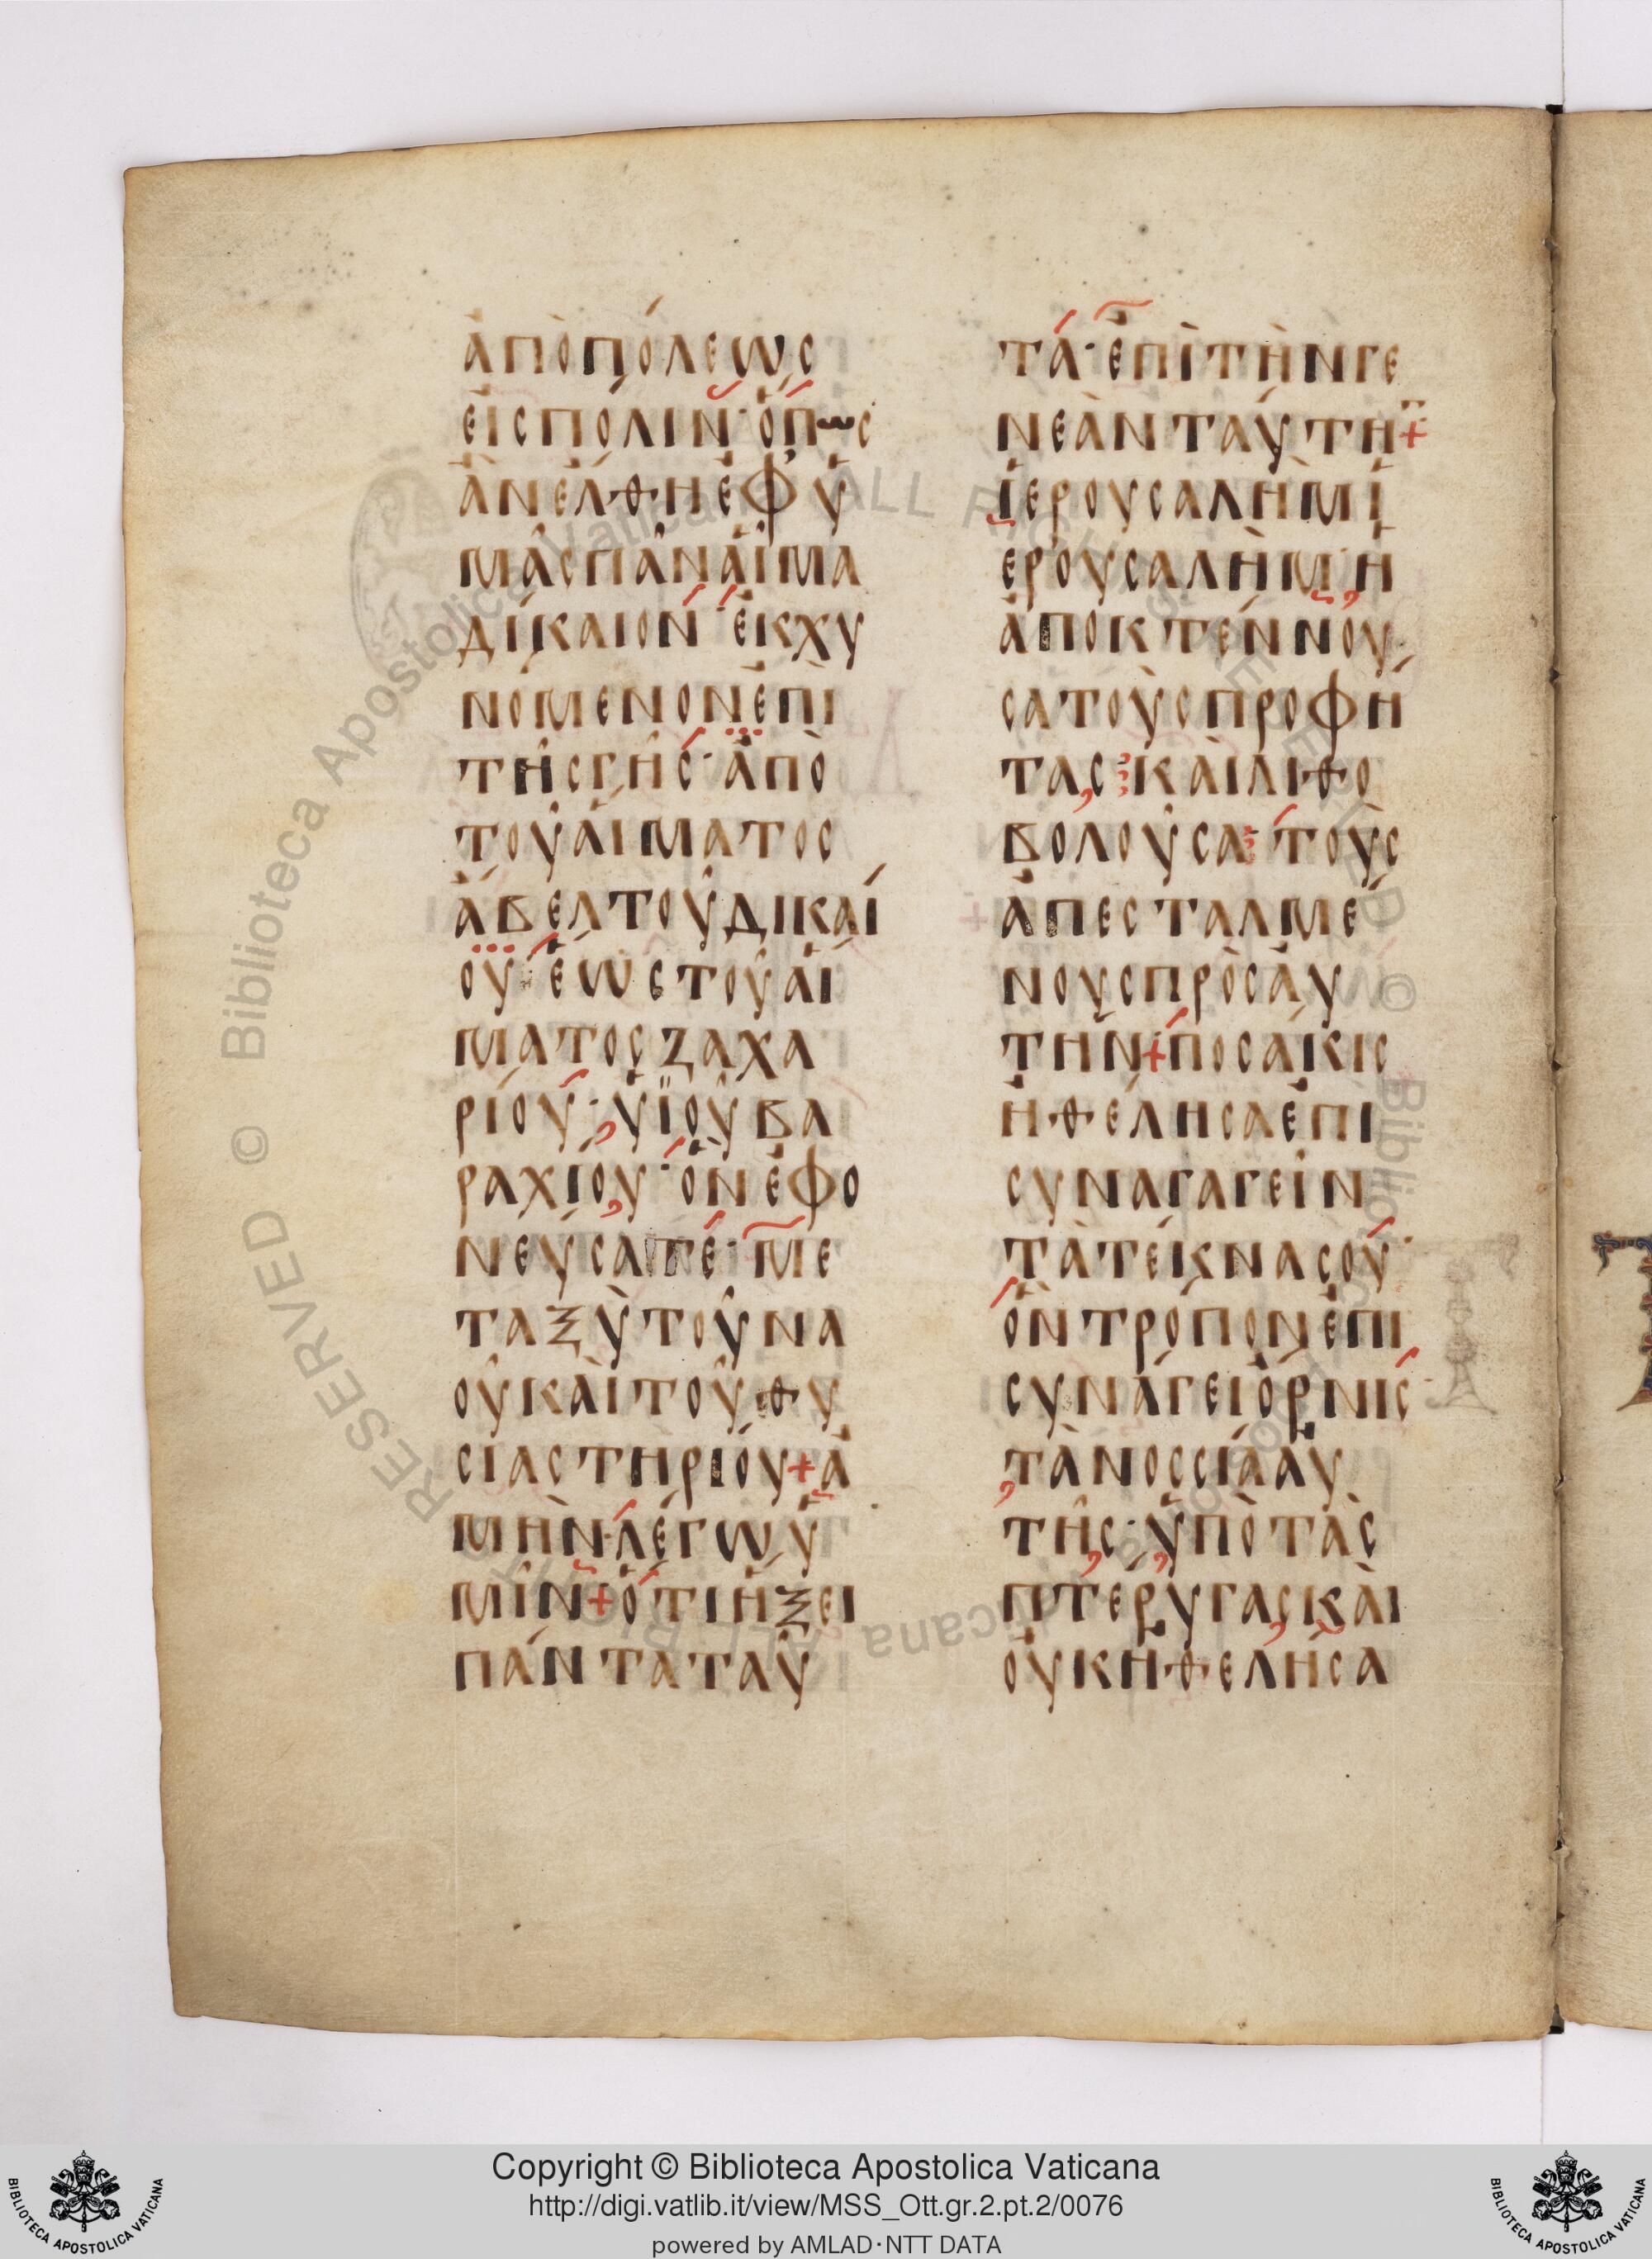 ἀπὸ πόλεως
εἰς πόλιν· ὅπως
ἂν ἔλθη ἐφ' ὑ
μᾶς πᾶν αἷμα
δίκαιον· ἐκχυ
νόμενον ἐπὶ
τῆς γῆς· ἀπὸ
τοῦ αἵματος
ἄβελ τοῦ δικαί
ου· ἕως τοῦ αἵ
ματος ζαχα
ρίου· υἱοῦ βα
ραχίου· ὃν ἐφο
νεύσατε· με
ταξὺ τοῦ να
οῦ καὶ τοῦ θυ
σιαστηρίου + ἀ
μὴν λέγω ὑ
μῖν + ὅτι ἥξει
πάντα ταῦ
τα· ἐπὶ τὴν γε
νεὰν ταύτη̅ +
ἱερουσαλὴμ ἱ
ερουσαλὴμ· ἡ
ἀποκτέννου
σα τοὺς προφή
τας καὶ λιθο
βολοῦσα τοὺς
ἀπεσταλμέ
νους πρὸς αὐ
τήν + ποσάκις
ἠθέλησα ἐπι
συναγαγεῖν
τὰ τέκνα σου·
ὃν τρόπον ἐπι
συνάγει ὄρνις·
τὰ νοσσία αὐ
τῆς· ὑπὸ τὰς
πτέρυγας καὶ
οὐκ ἠθελήσα
Copyright © Biblioteca Apostolica Vaticana
http://digi.vatlib.it/view/MSS_Ott.gr.2.pt.2/0076
powered by AMLAD·NTT DATA
BIBLIOTECA APOSTOLICA VATICANA
BIBLIOTECA APOSTOLICA VATICANA